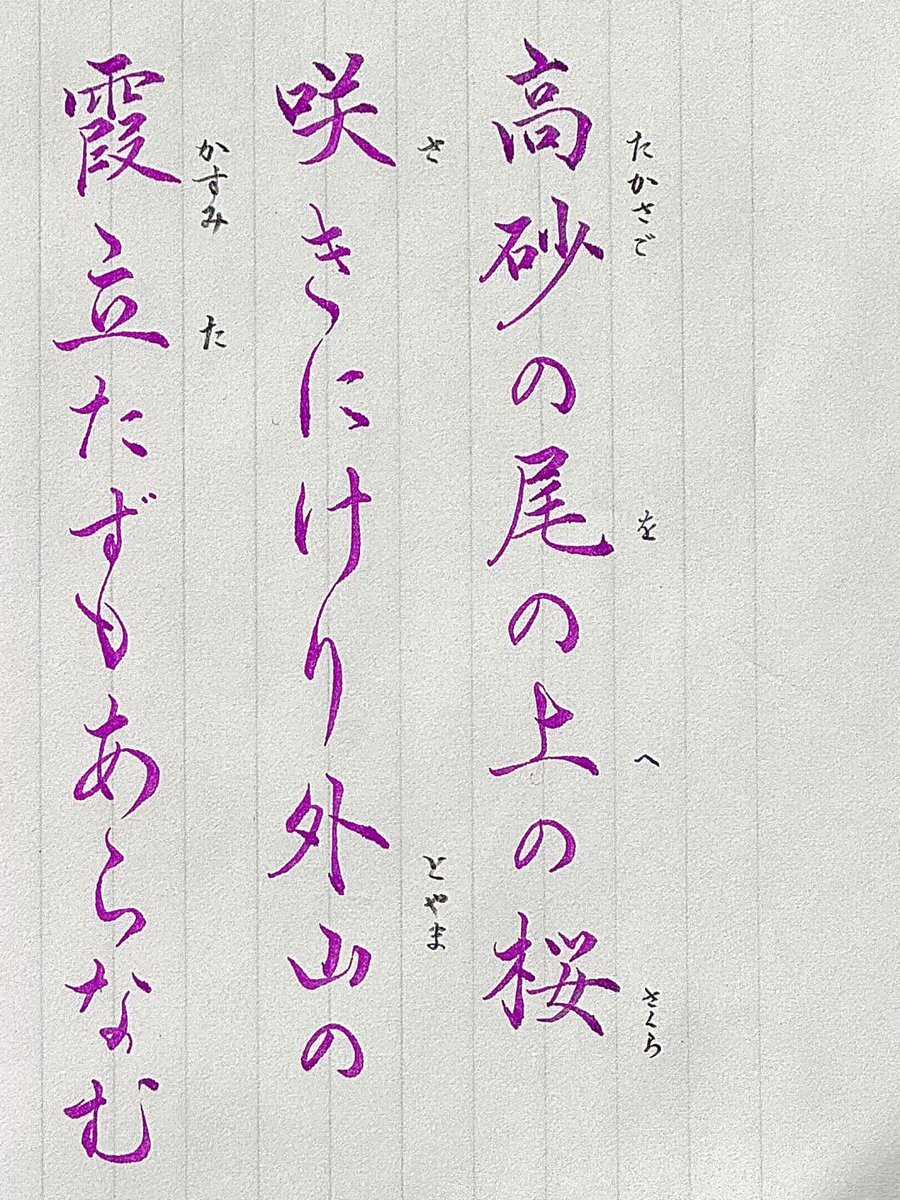 高砂の尾の上の桜
たかさご を へ さくら
咲きにけり外山の
さ とやま
霞立たずもあらなむ
かすみ た